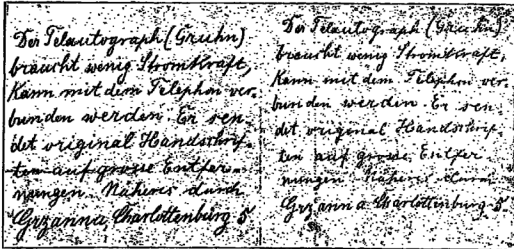 Der Telautograph (Gruhn)
braucht wenig Stromkraft,
Kann mit dem Telephon ver-
bunden werden. Er sen-
det original Handschrif-
ten auf grosse Entfer-
nungen. Näheres durch
Grzanna, Charlottenburg 5
Der Telautograph (Gruhn)
braucht wenig Stromkraft,
Kann mit dem Telephon ver-
bunden werden. Er sen-
det original Handschrif-
ten auf grosse Entfer
nungen. Näheres durch
Grzanna Charlottenburg 5